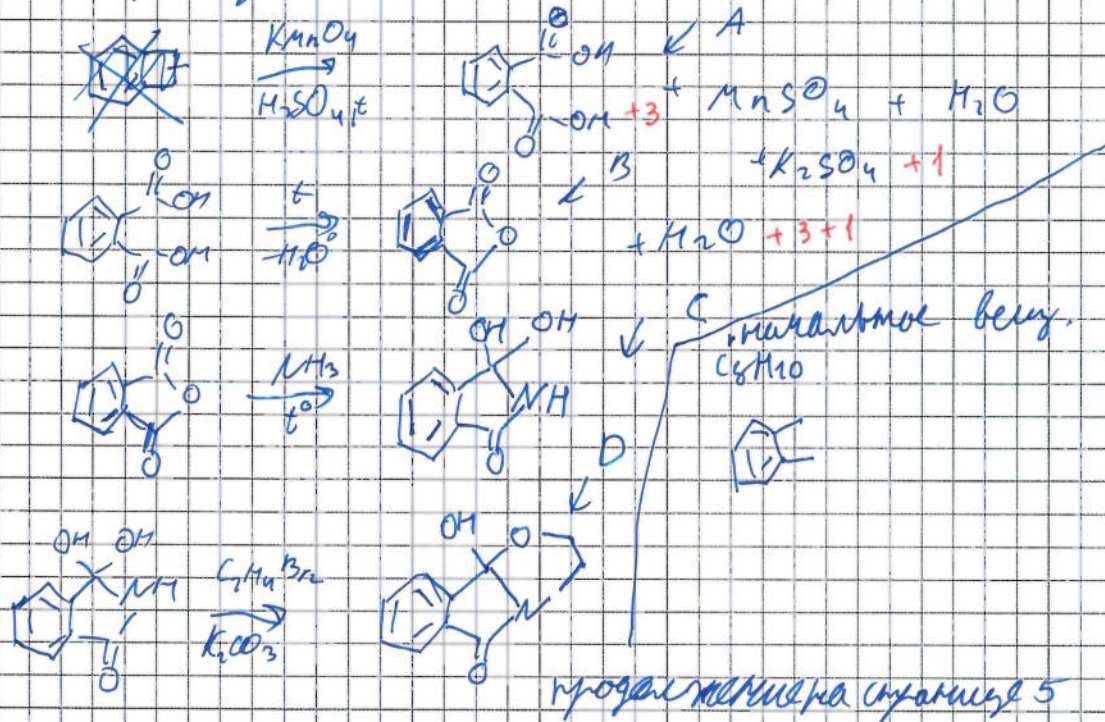 KMnO4
H2SO4, t
O
OH
OH
O
+3
A
+ MnSO4 + H2O
+K2SO4 +1
O
OH
OH
O
t°
-H2O
O
O
O
B
+ H2O +3+1
O
O
O
NH3
t°
OH
OH
NH
O
C
начальное вещ.
C8H10
OH OH
NH
O
Br2
K2CO3
OH
O
N
O
D
продолжение на странице 5